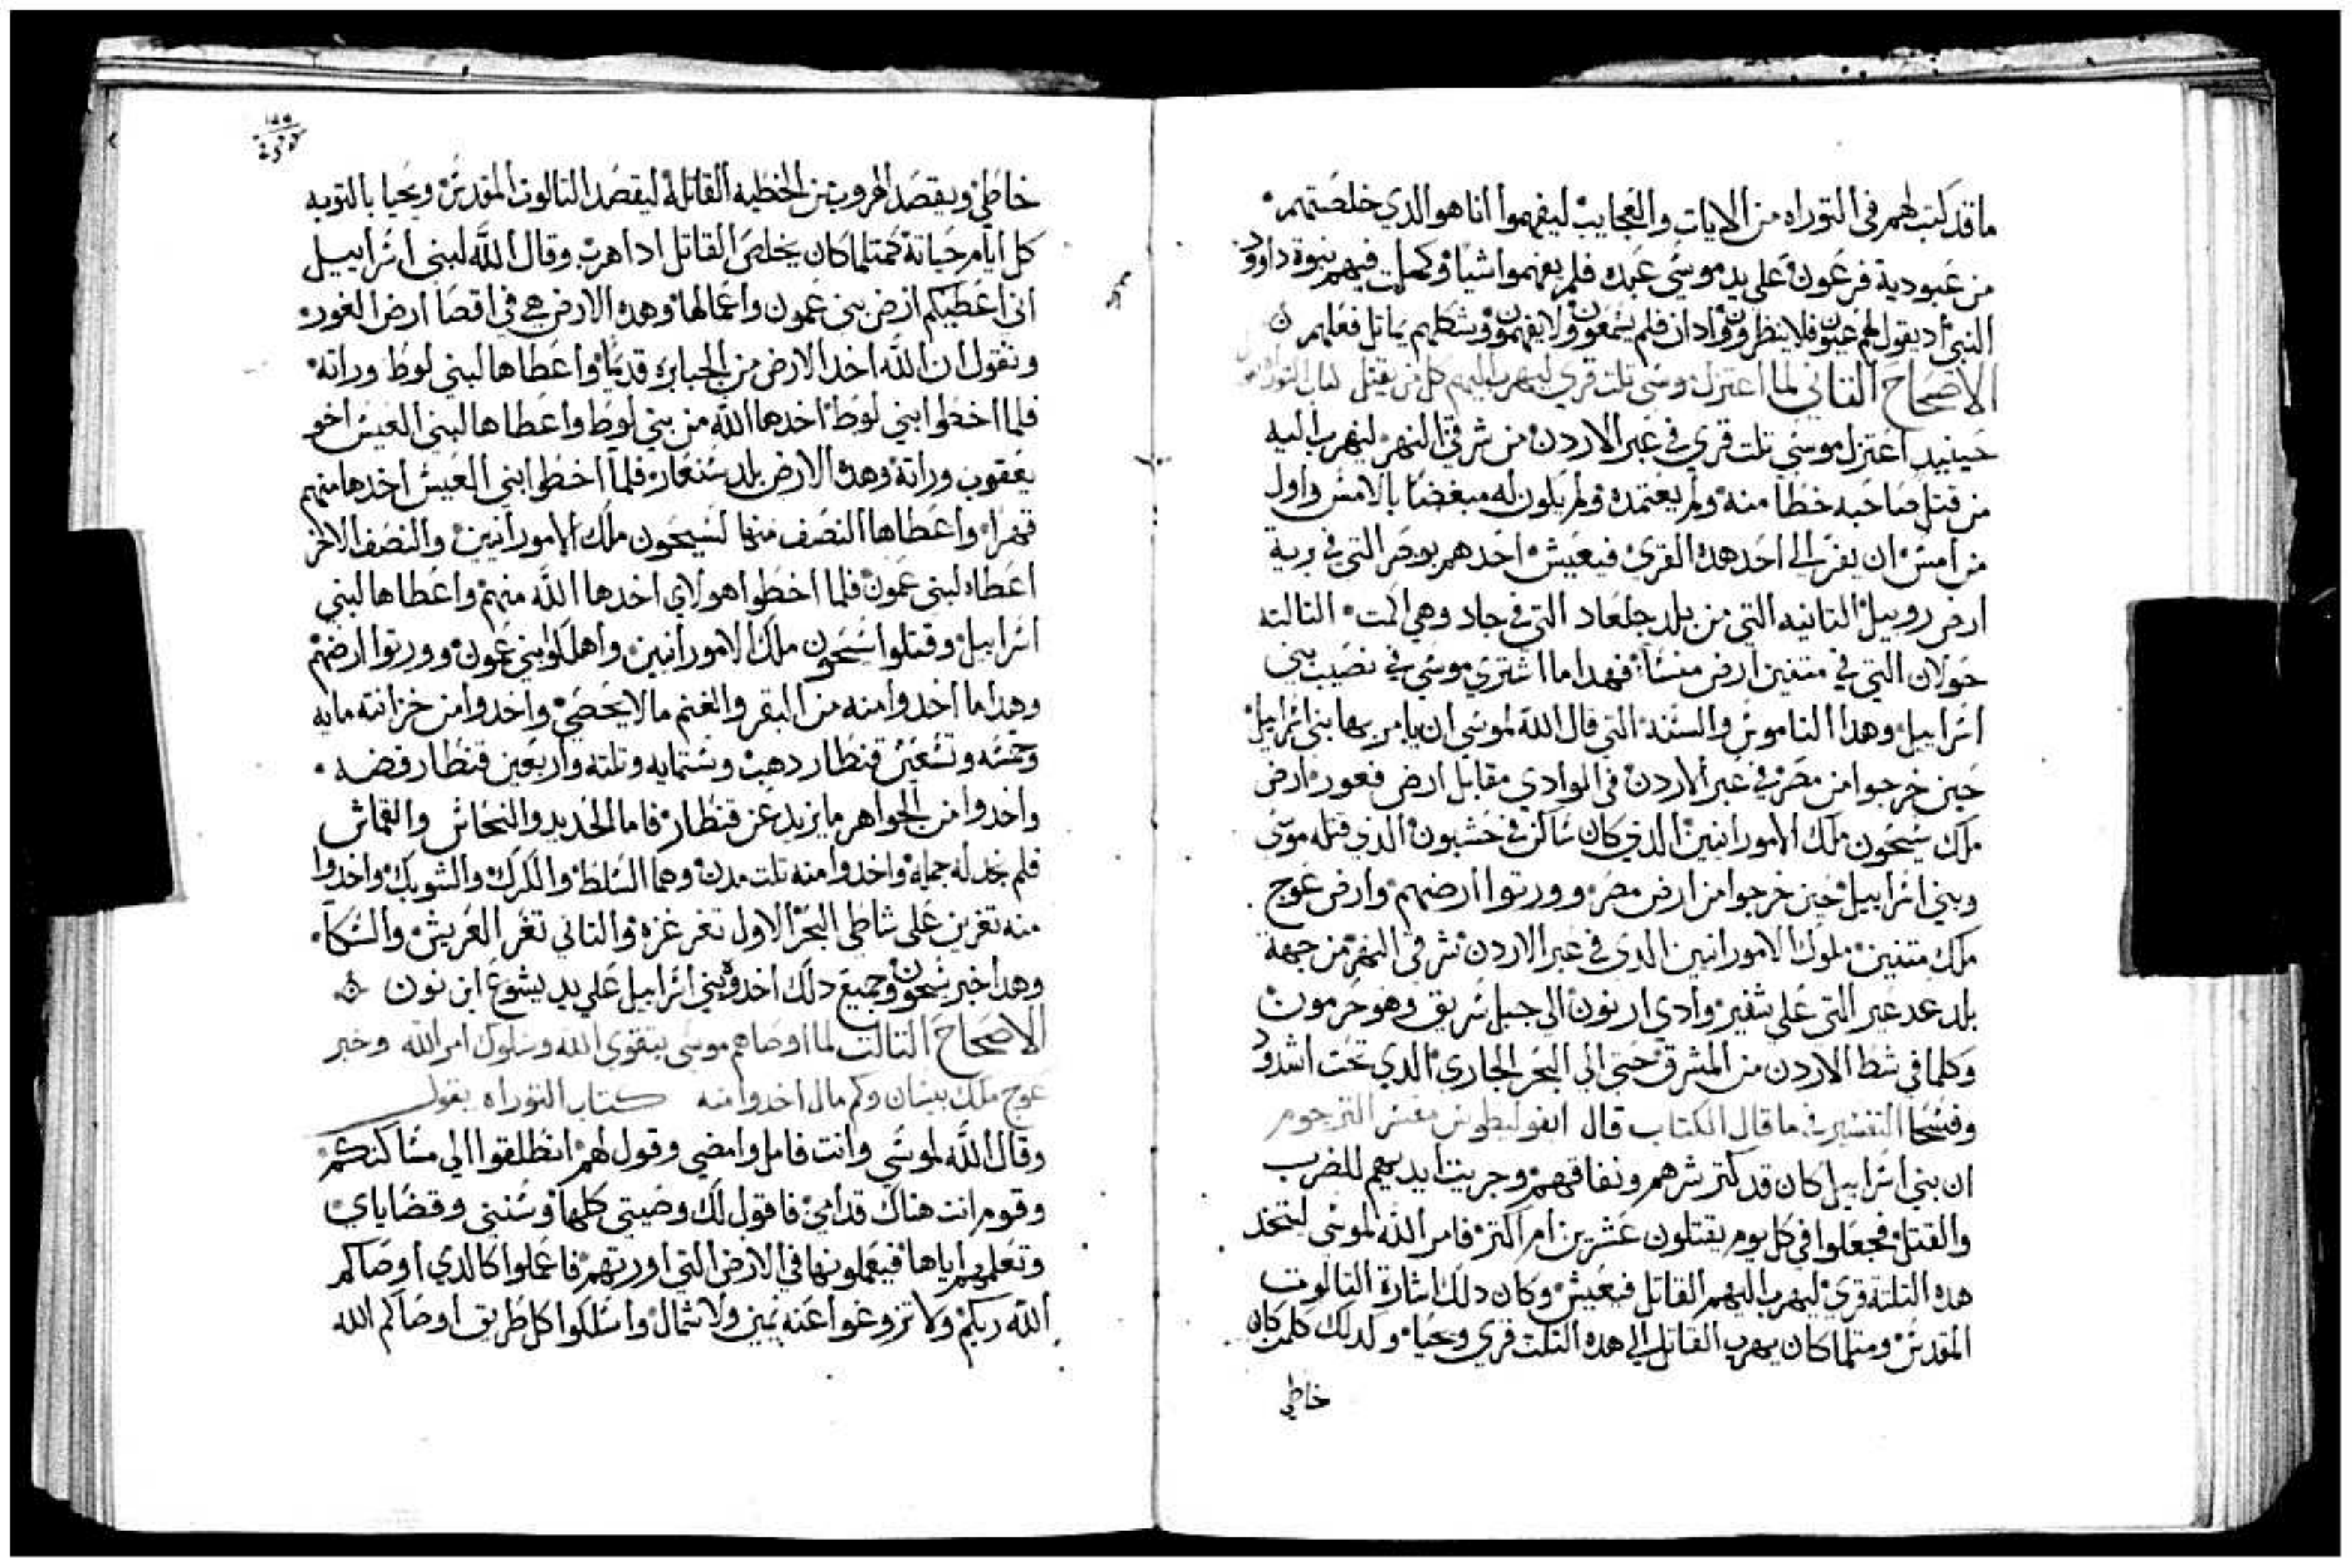 ما قد كتب لهم في التوراه من الايات والعجايب ليفهموا انا هو الدي خلصتهم
من عبودية فرعون على يد موسى عبده فلم يفهموا شيا وكملت فيهم نبوة داوود
النبي اد يقول لهم عيون فلا ينظرون وادان فلم يسمعون ولا يفهمون وشكلهم يماتل فعلهم
الاصحاح التاني لما اعتزل موسى تلت قرى ليهرب اليهم كل من يقتل كتاب التوراه
حينيد اعتزل موسي تلت قري في عبر الاردن من شرقي النهر ليهرب اليه
من قتل صاحبه خطا منه ولم يعتمده ولم يكون له مبغضا بالامس واول
من امس ان يفر الى احد هده القرى فيعيش احدهم بوصر التي في برية
ارض روبيل التانيه التي من بلد جلعاد التي في جاد وهي الحت التالته
حولان التي في متنين ارض منسا فهدا ما اشترى موسي في نصيب بني
اسراييل وهدا الناموس والسنه التي قال الله لموسي ان يامر بها بني اسراييل
حين خرجوا من مصر في عبر الاردن في الوادي مقابل ارض فعور ارض
ملك سيحون ملك الامورانيين الدي كان ساكن في حشبون الدي قتله موسى
وبني اسراييل حين خرجوا من ارض مصر وورتوا ارضهم وارض عوج
ملك متنين ملوك الامورانيين الدى في عبر الاردن شرقى النهر من جهة
بلد عدعير التى على شفير وادي ارنون الى جبل شريق وهو حرمون
وكلما في شط الاردن من المشرق حتى الي البحر الجاري الدي تحت اشدود
وفسحا التفسير في ما قال الكتاب قال ابفوليطوس مفسر الترجوم
ان بني اسراييل كان قد كتر شرهم ونفاقهم وجريت ايديهم للضرب
والقتل فجعلوا في كل يوم يقتلون عشرين ام اكتر فامر الله لموسى ليتخد
هده التلتة قرى ليهرب اليهم القاتل فيعيش وكان دلك اشارة التالوت
المقدس ومتلما كان يهرب القاتل الى هده التلت قري ويحيا ولدلك كلمن كان
خاطي
خاطي ويقصد الهروب من الخطيه القاتله ليقصد التالوت المقدس ويحيا بالتوبه
كل ايام حياته كمتلما كان يخلص القاتل ادا هرب وقال الله لبني اسراييل
انى اعطيكم ارض بني عمون واعمالها وهده الارض هي في اقصا ارض الغور
ونقول ان الله اخد الارض من الجبابره قديما واعطاها لبني لوط وراته
فلما اخطوا بني لوط اخدها الله من بني لوط واعطاها لبني العيس اخو
يعقوب وراتة وهده الارض بلد سنعار فلما اخطوا بني العيس اخدها منهم
قهرا واعطاها النصف منها لسيحون ملك الامورانيين والنصف الاخر
اعطاه لبني عمون فلما اخطوا هولاي اخدها الله منهم واعطاها لبني
اسراييل وقتلوا سيحون ملك الامورانيين واهلكوا بني عمون وورتوا ارضهم
وهدا ما اخدوا منه من البقر والغنم ما لا يحصى واخدوا من خزانته مايه
وخمسه وتسعين قنطار دهب وستمايه وتلته واربعين قنطار فضه
واخدوا من الجواهر ما يزيد عن قنطار فاما الحديد والنحاس والقماش
فلم نجد له جمله واخدوا منه تلت مدن وهما السلط والكرك والشوبك واخدوا
منه تغرين على شاطي البحر الاول تغر غزه والتاني تغر العريش والسكا
وهدا خبر سيحون وجميع دلك اخدوه بني اسراييل علي يد يشوع ابن نون
الاصحاح التالت لما اوصاهم موسى بتقوى الله وسلوك امر الله وخبر
عوج ملك بيسان وكم مال اخدوا منه كتاب التوراه يقول
وقال الله لموسي وانت فامل وامضي وقول لهم انطلقوا الي مساكنكم
وقوم انت هناك قدامي فاقول لك وصيتي كلها وسنني وقضاياي
وتعلمهم اياها فيعملونها في الارض التي اورتهم فاعملوا كالدي اوصاكم
الله ربكم ولا تزوغوا عنه يمين ولا شمال واسلكوا كل طريق اوصاكم الله